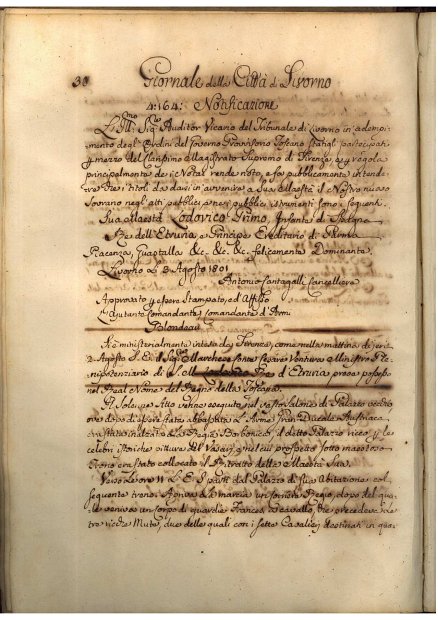 30 Giornale della Città di Livorno
4:164: Notificazione
L'Ill:mo Sig:re Auditor Vicario del Tribunale di Livorno in adempi-
mento degl'Ordini del Governo Provvisorio Toscano statigli partecipati
p mezzo del Clariss:mo Magistrato Supremo di Firenze, e p regola
principalmente dei Notai rende noto, e fà pubblicamente intende-
re che i titoli da darsi in avvenire a Sua Maestà il Nostro nuovo
Sovrano negl'atti pubblici, e nei pubblici istrumenti sono i seguenti.
Sua Maestà Lodovico Primo, Infante di Spagna
Re dell'Etruria e Principe Ereditario di Parma
Piacenza, Guastalla &c. &c. &c. felicemente Dominante.
Livorno Li 2 Agosto 1801
Antonio Cantagalli Cancelliere
Approvato p essere Stampato, ed Affisso
L'Aiutante Comandante, Comandante d'Armi
Blondeau
Ne ministerialmente inteso da Firenze, come nella mattina di jeri
2 Agosto S. E. il Sig:re Marchese Conte Cesare Ventura Ministro Ple-
nipotenziario di S. M. Lodovico Re d'Etruria prese possesso
nel Real Nome del Regno della Toscana.
Il Solenne Atto venne eseguito nel vasto Salone di Palazzo vecchio
ove dopo di essere stata abbassata l'Arme Gran Ducale Austriaca
era stata inalzata la Regia Borbonica; il detto Palazzo ricco p le
celebri Storiche pitture del Vasari, e nel cui prospetto sotto maestoso
Trono era stato collocato il Ritratto della Maestà Sua.
Verso le ore 11 L. E. S. partì dal Palazzo di sua Abitazione col
seguente treno. Apriva la marcia un
Regio, dopo del qua-
le veniva un corpo di guardie Francesi a Cavallo, che precedeva
tro ricche Mute, due delle quali con i sette Cavalieri destinati in qua-